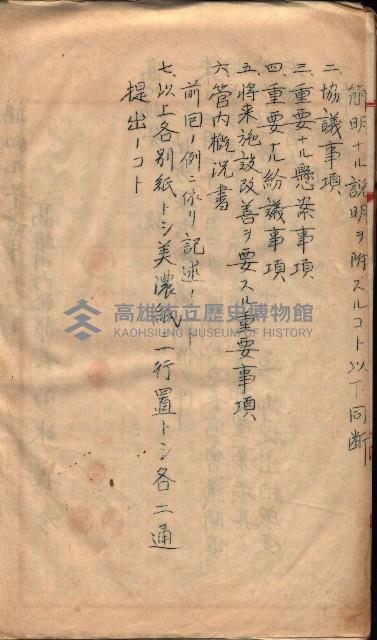 簡明ナル説明ヲ附スルコト以下同断
二、協議事項
三、重要ナル懸案事項
四、重要ナル紛議事項
五、将来施設改善ヲ要スル重要事項
六、管内概況書
前回ノ例ニ依リ記述ノコト
七、以上各別紙トシ美濃紙一行置トシ各二通
提出ノコト
高雄市立歷史博物館
KAOHSIUNG MUSEUM OF HISTORY